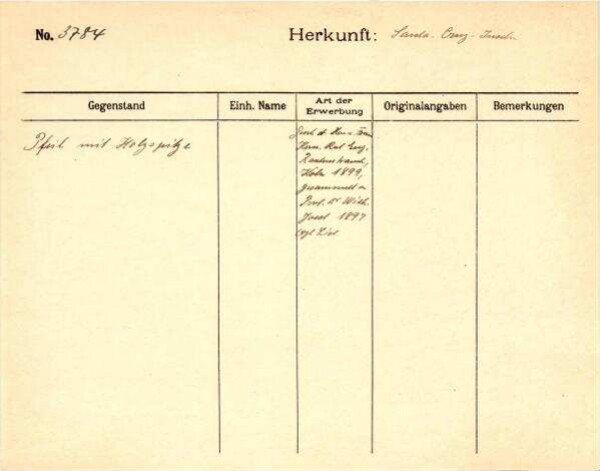 No. 3784 Herkunft: Santa-Cruz-Inseln
Gegenstand Einh. Name Art der Erwerbung Originalangaben Bemerkungen
Pfeil mit Holzspitze
Gesch. d. Herrn u. Frau
Köln 1899,
gesammelt v.
Prof. Dr Wilh.
Joest 1897